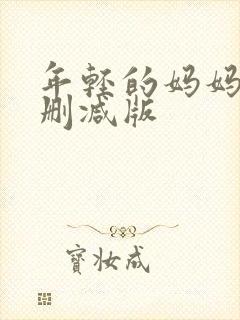 年轻的妈妈
删减版
宝妆成